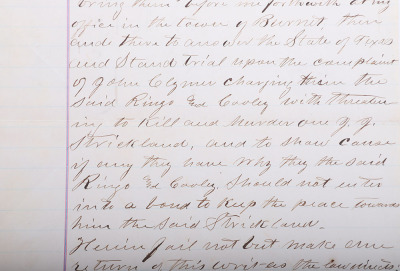 bring them before me forthwith at my
office in the town of Burnet, then
and there to answer the State of Texas
and Stand trial upon the complaint
of John Clymer charging them the
said Ringo Ed Cooley with threaten
ing to Kill and Murder one J. J.
Strickland, and to show cause
if any they have why they the said
Ringo Ed Cooley, Should not enter
into a bond to Keep the peace towards
him the Said Strickland.
Herein fail not but make due
return of this writ as the law directs